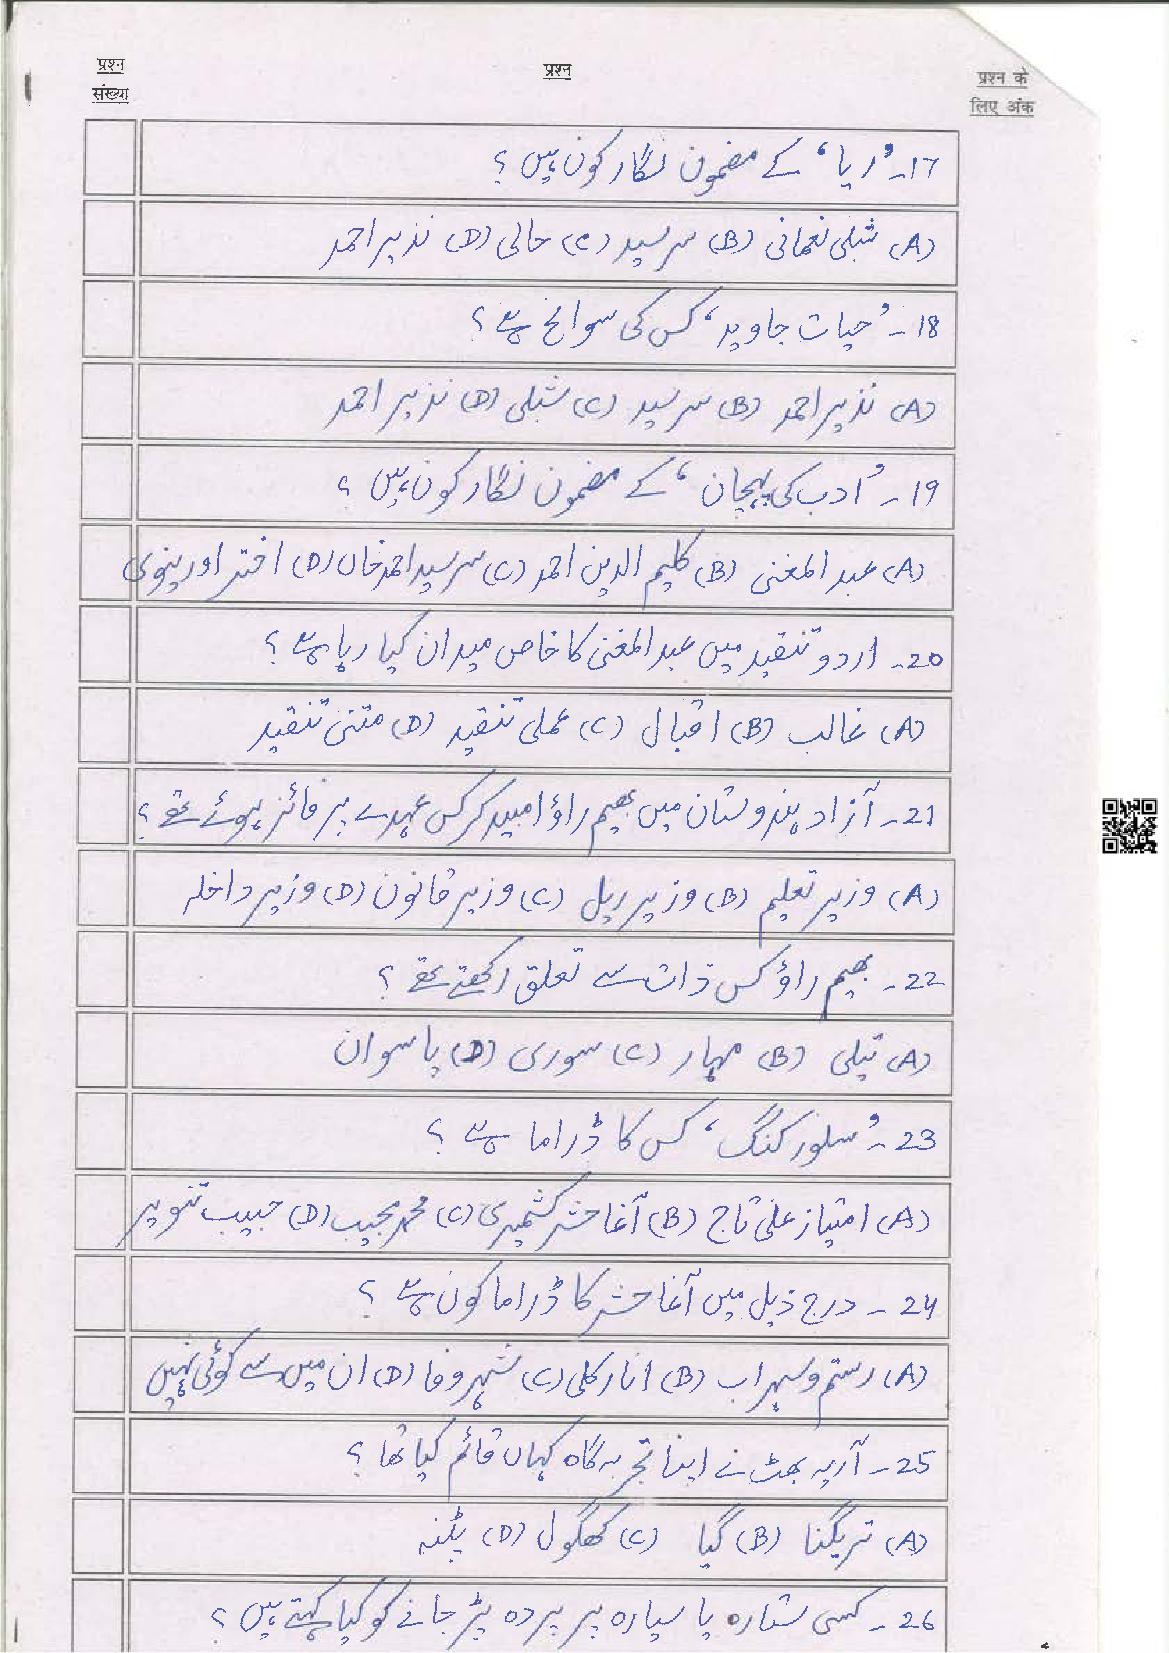 प्रश्न संख्या
प्रश्न
प्रश्न के लिए अंक
17۔ ’ریا‘ کے مضمون نگار کون ہیں ؟
(A) شبلی نعمانی (B) سرسید (C) حالی (D) نذیر احمد
18۔ ’حیات جاوید‘ کس کی سوانح ہے ؟
(A) نذیر احمد (B) سرسید (C) شبلی (D) نذیر احمد
19۔ ’ادب کی پہچان‘ کے مضمون نگار کون ہیں ؟
(A) عبد المغنی (B) کلیم الدین احمد (C) سرسید احمد خاں (D) اختر اورینوی
20۔ اردو تنقید میں عبد المغنی کا خاص میدان کیا رہا ہے ؟
(A) غالب (B) اقبال (C) عملی تنقید (D) متنی تنقید
21۔ آزاد ہندوستان میں بھیم راؤ امبیدکر کس عہدے پر فائز ہوئے تھے ؟
(A) وزیر تعلیم (B) وزیر ریل (C) وزیر قانون (D) وزیر داخلہ
22۔ بھیم راؤ کس ذات سے تعلق رکھتے تھے ؟
(A) تیلی (B) مہار (C) سوری (D) پاسوان
23۔ ’سلور کنگ‘ کس کا ڈراما ہے ؟
(A) امتیاز علی تاج (B) آغا حشر کشمیری (C) محمد مجیب (D) حبیب تنویر
24۔ درج ذیل میں آغا حشر کا ڈراما کون ہے ؟
(A) رستم و سہراب (B) انار کلی (C) شہر وفا (D) ان میں سے کوئی نہیں
25۔ آریہ بھٹ نے اپنا تجربہ گاہ کہاں قائم کیا تھا ؟
(A) تریگنا (B) گیا (C) کھگول (D) پٹنہ
26۔ کسی ستارہ یا سیارہ پر پردہ پڑ جانے کو کیا کہتے ہیں ؟